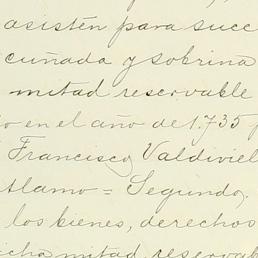 asistén para succ
cuñada y sobrina
mitad reservable
o en el año de 1.735
Francisco Valdiviel
tlamo = Segundo.
los bienes, derechos
icha mitad reservab